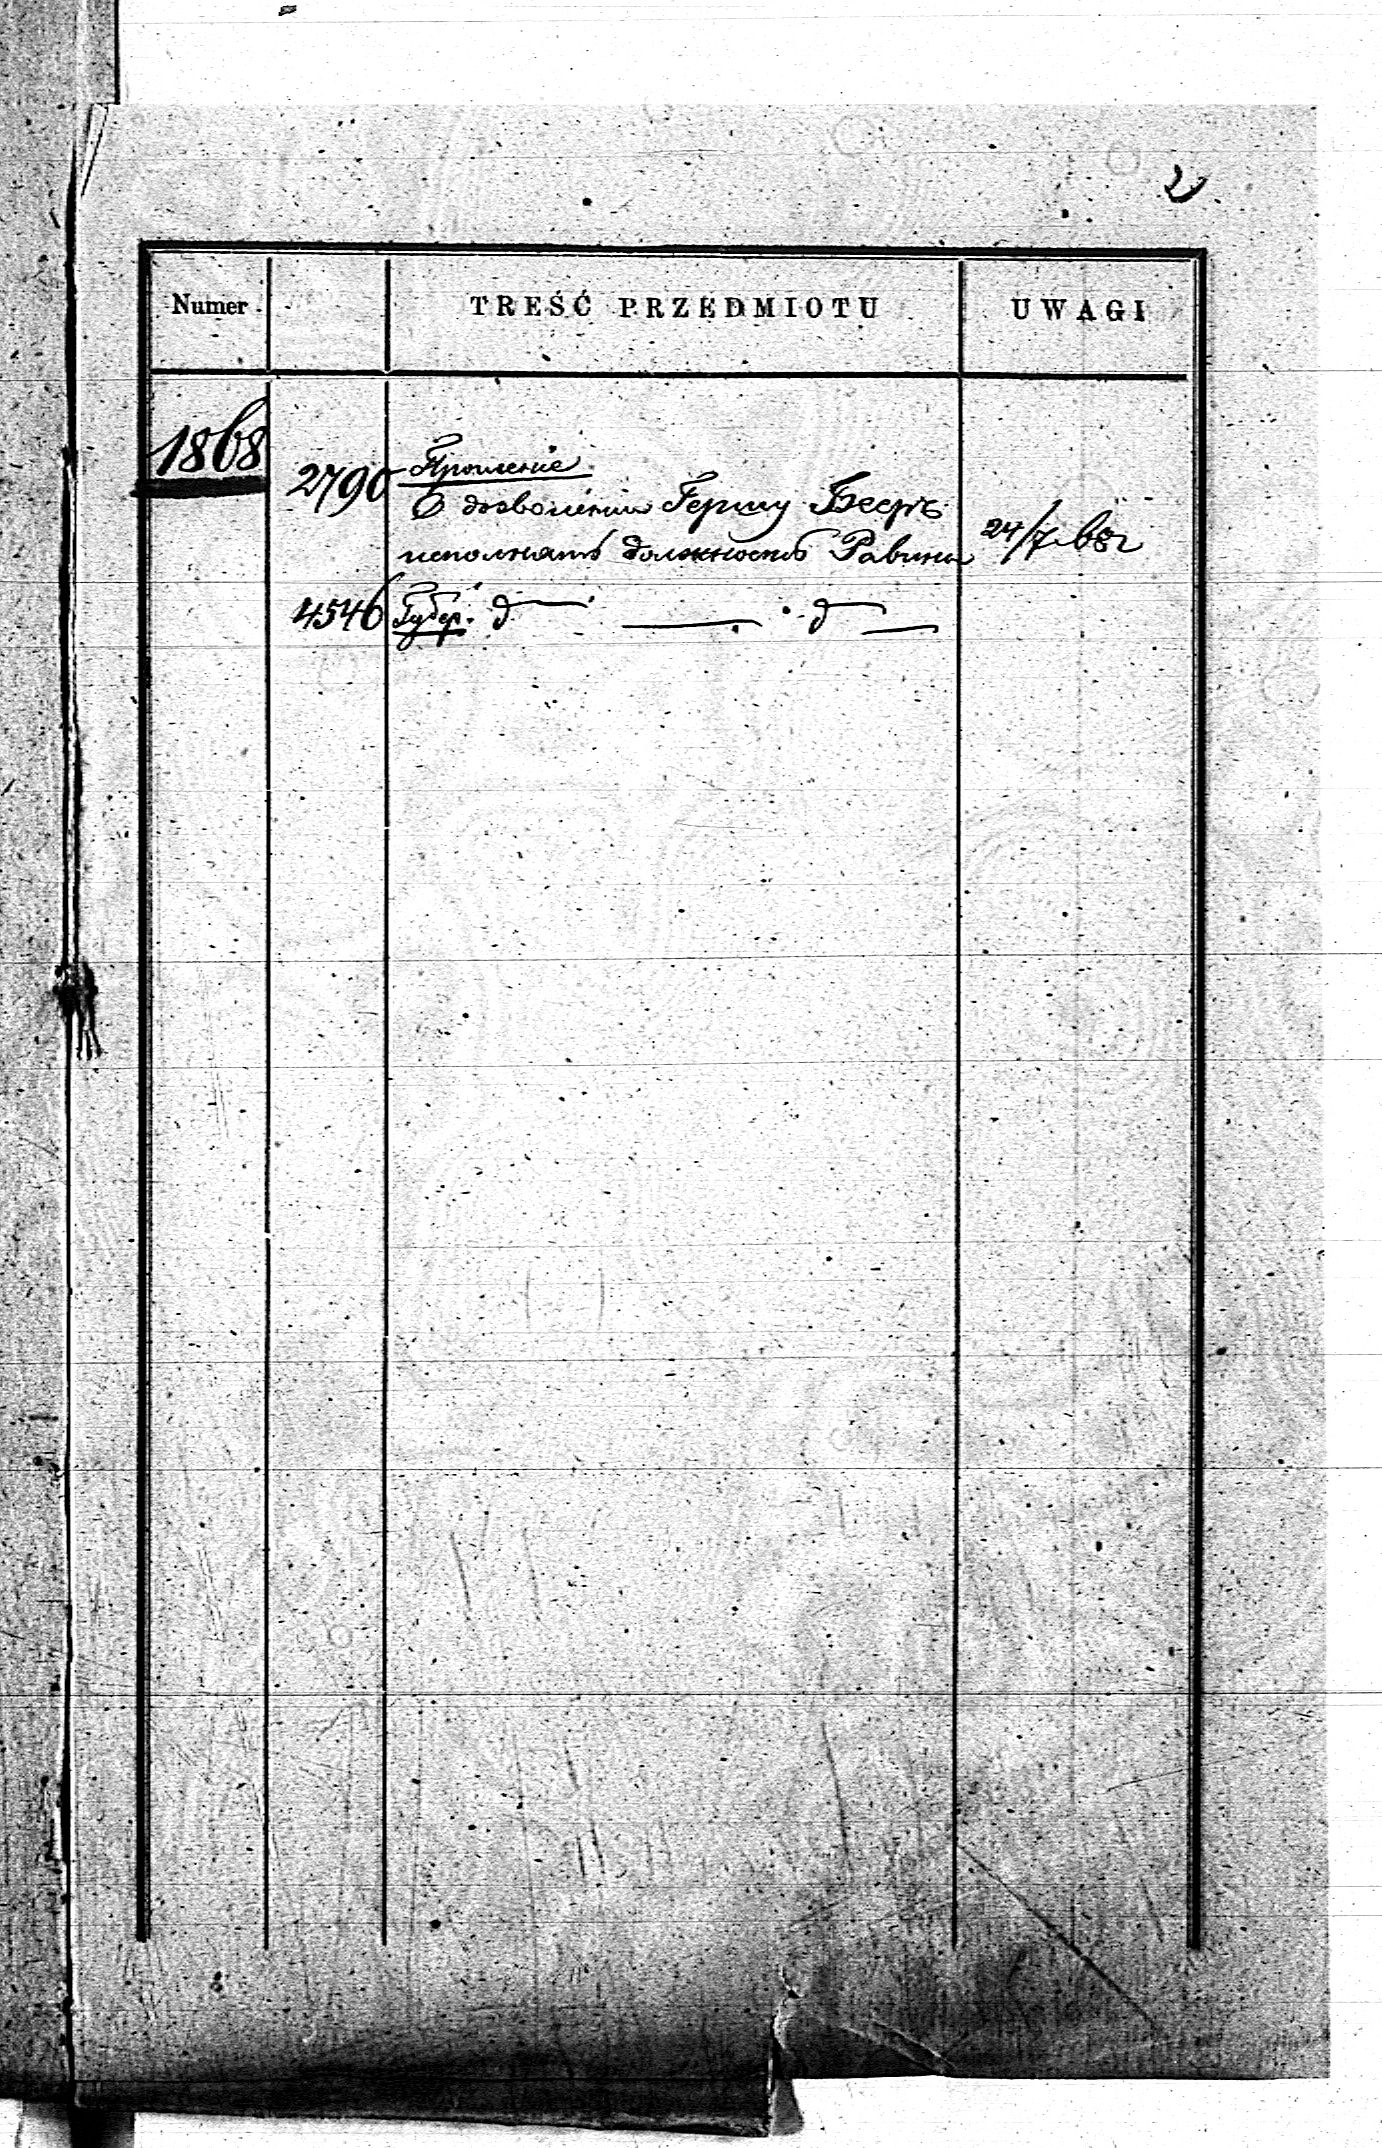 2
Numer
TREŚĆ PRZEDMIOTU
UWAGI
1868
2790 Прошение
О дозволении Гершу Беерь
исполнять должность Равина
24/7 68 г
4546 Губер. д — — д —